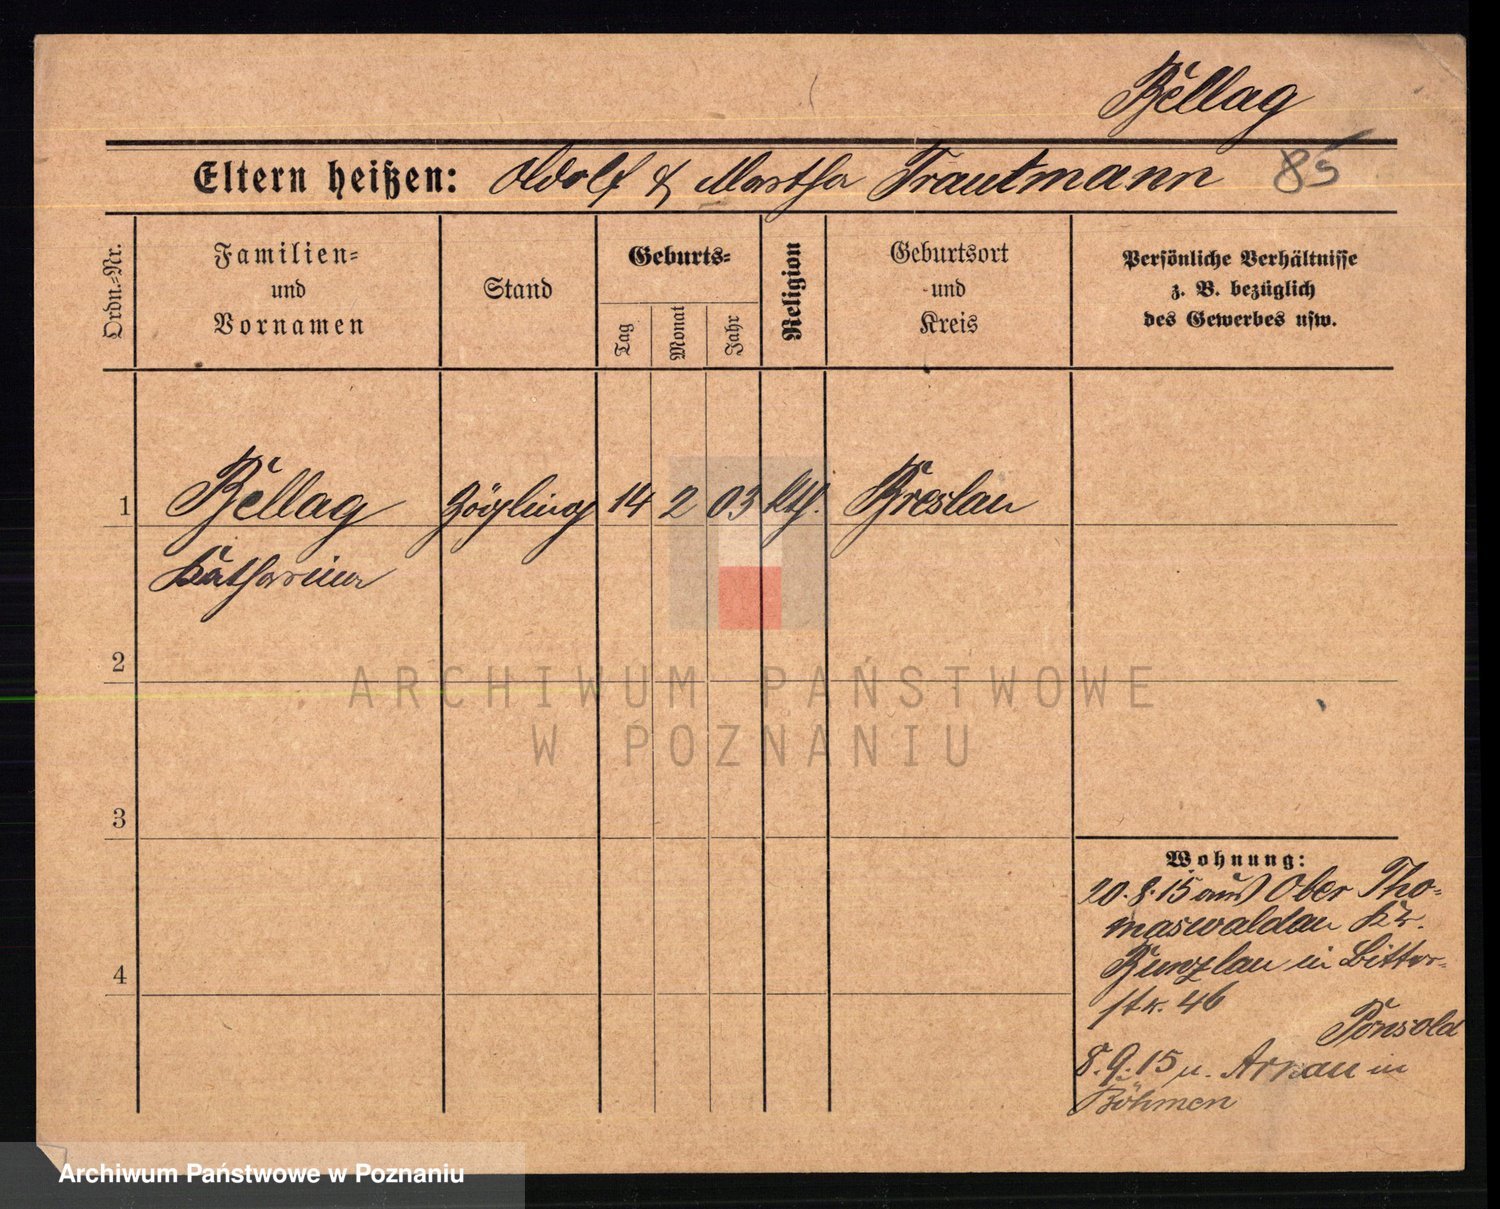 Bellag
Eltern heißen: Adolf & Martha Trautmann 85
Ordn.-Nr.
Familien-
und
Vornamen
Stand
Geburts-
Tag
Monat
Jahr
Religion
Geburtsort
und
Kreis
Persönliche Verhältnisse
z. B. bezüglich
des Gewerbes usw.
1 Bellag Zögling 14 2 03 kth. Breslau
Katharina
2
ARCHIWUM PAŃSTWOWE
W POZNANIU
3
4
Wohnung:
20.8.15 aus Ober Tho-
maswaldau Kr.
Bunzlau in Bitter-
str. 46
Ponsold
8.9.15 n. Arnau in
Böhmen
Archiwum Państwowe w Poznaniu